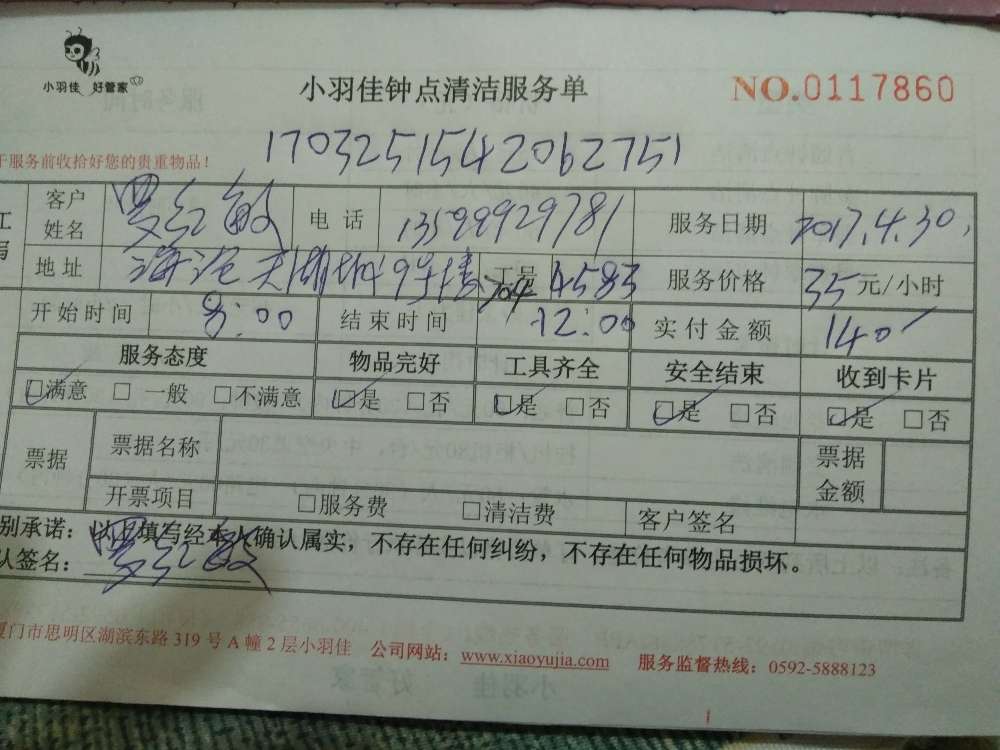 小羽佳 好管家
小羽佳钟点清洁服务单
NO.0117860
17032515542062751
于服务前收拾好您的贵重物品！
客户姓名 罗红敏 电话 13599929781 服务日期 2017.4.30.
地址 海沧天湖城 工号 14583 服务价格 35元/小时
开始时间 8:00 结束时间 12:00 实付金额 140
服务态度 物品完好 工具齐全 安全结束 收到卡片
□满意 □一般 □不满意 □是 □否 □是 □否 □是 □否 □是 □否
票据 票据名称 票据金额
开票项目 □服务费 □清洁费 客户签名
别承诺：以上填写经本人确认属实，不存在任何纠纷，不存在任何物品损坏。
认签名： 罗红敏
厦门市思明区湖滨东路319号A幢2层小羽佳 公司网站：www.xiaoyujia.com 服务监督热线：0592-5888123